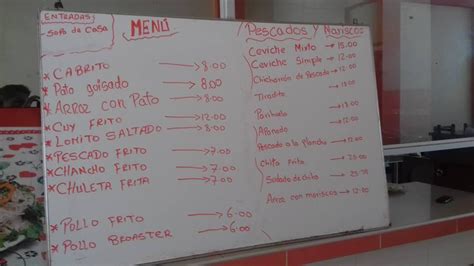 ENTRADAS
- Sopa de Casa
MENÚ
* CABRITO → 8.00
* Pato guisado → 8.00
* Arroz con Pato → 8.00
* CUY FRITO → 12.00
* LOMITO SALTADO → 8.00
* PESCADO FRITO → 7.00
* CHANCHO FRITO → 7.00
* CHULETA FRITA → 7.00
* POLLO FRITO → 6.00
* POLLO BROASTER → 6.00
Pescados y Mariscos
Ceviche Mixto → 15.00
Ceviche Simple → 12.00
Chicharrón de Pescado → 12.00
Tiradito
Parihuela → 18.00
Pescado a la plancha → 12.00
Chita frita
Arroz con mariscos → 12.00